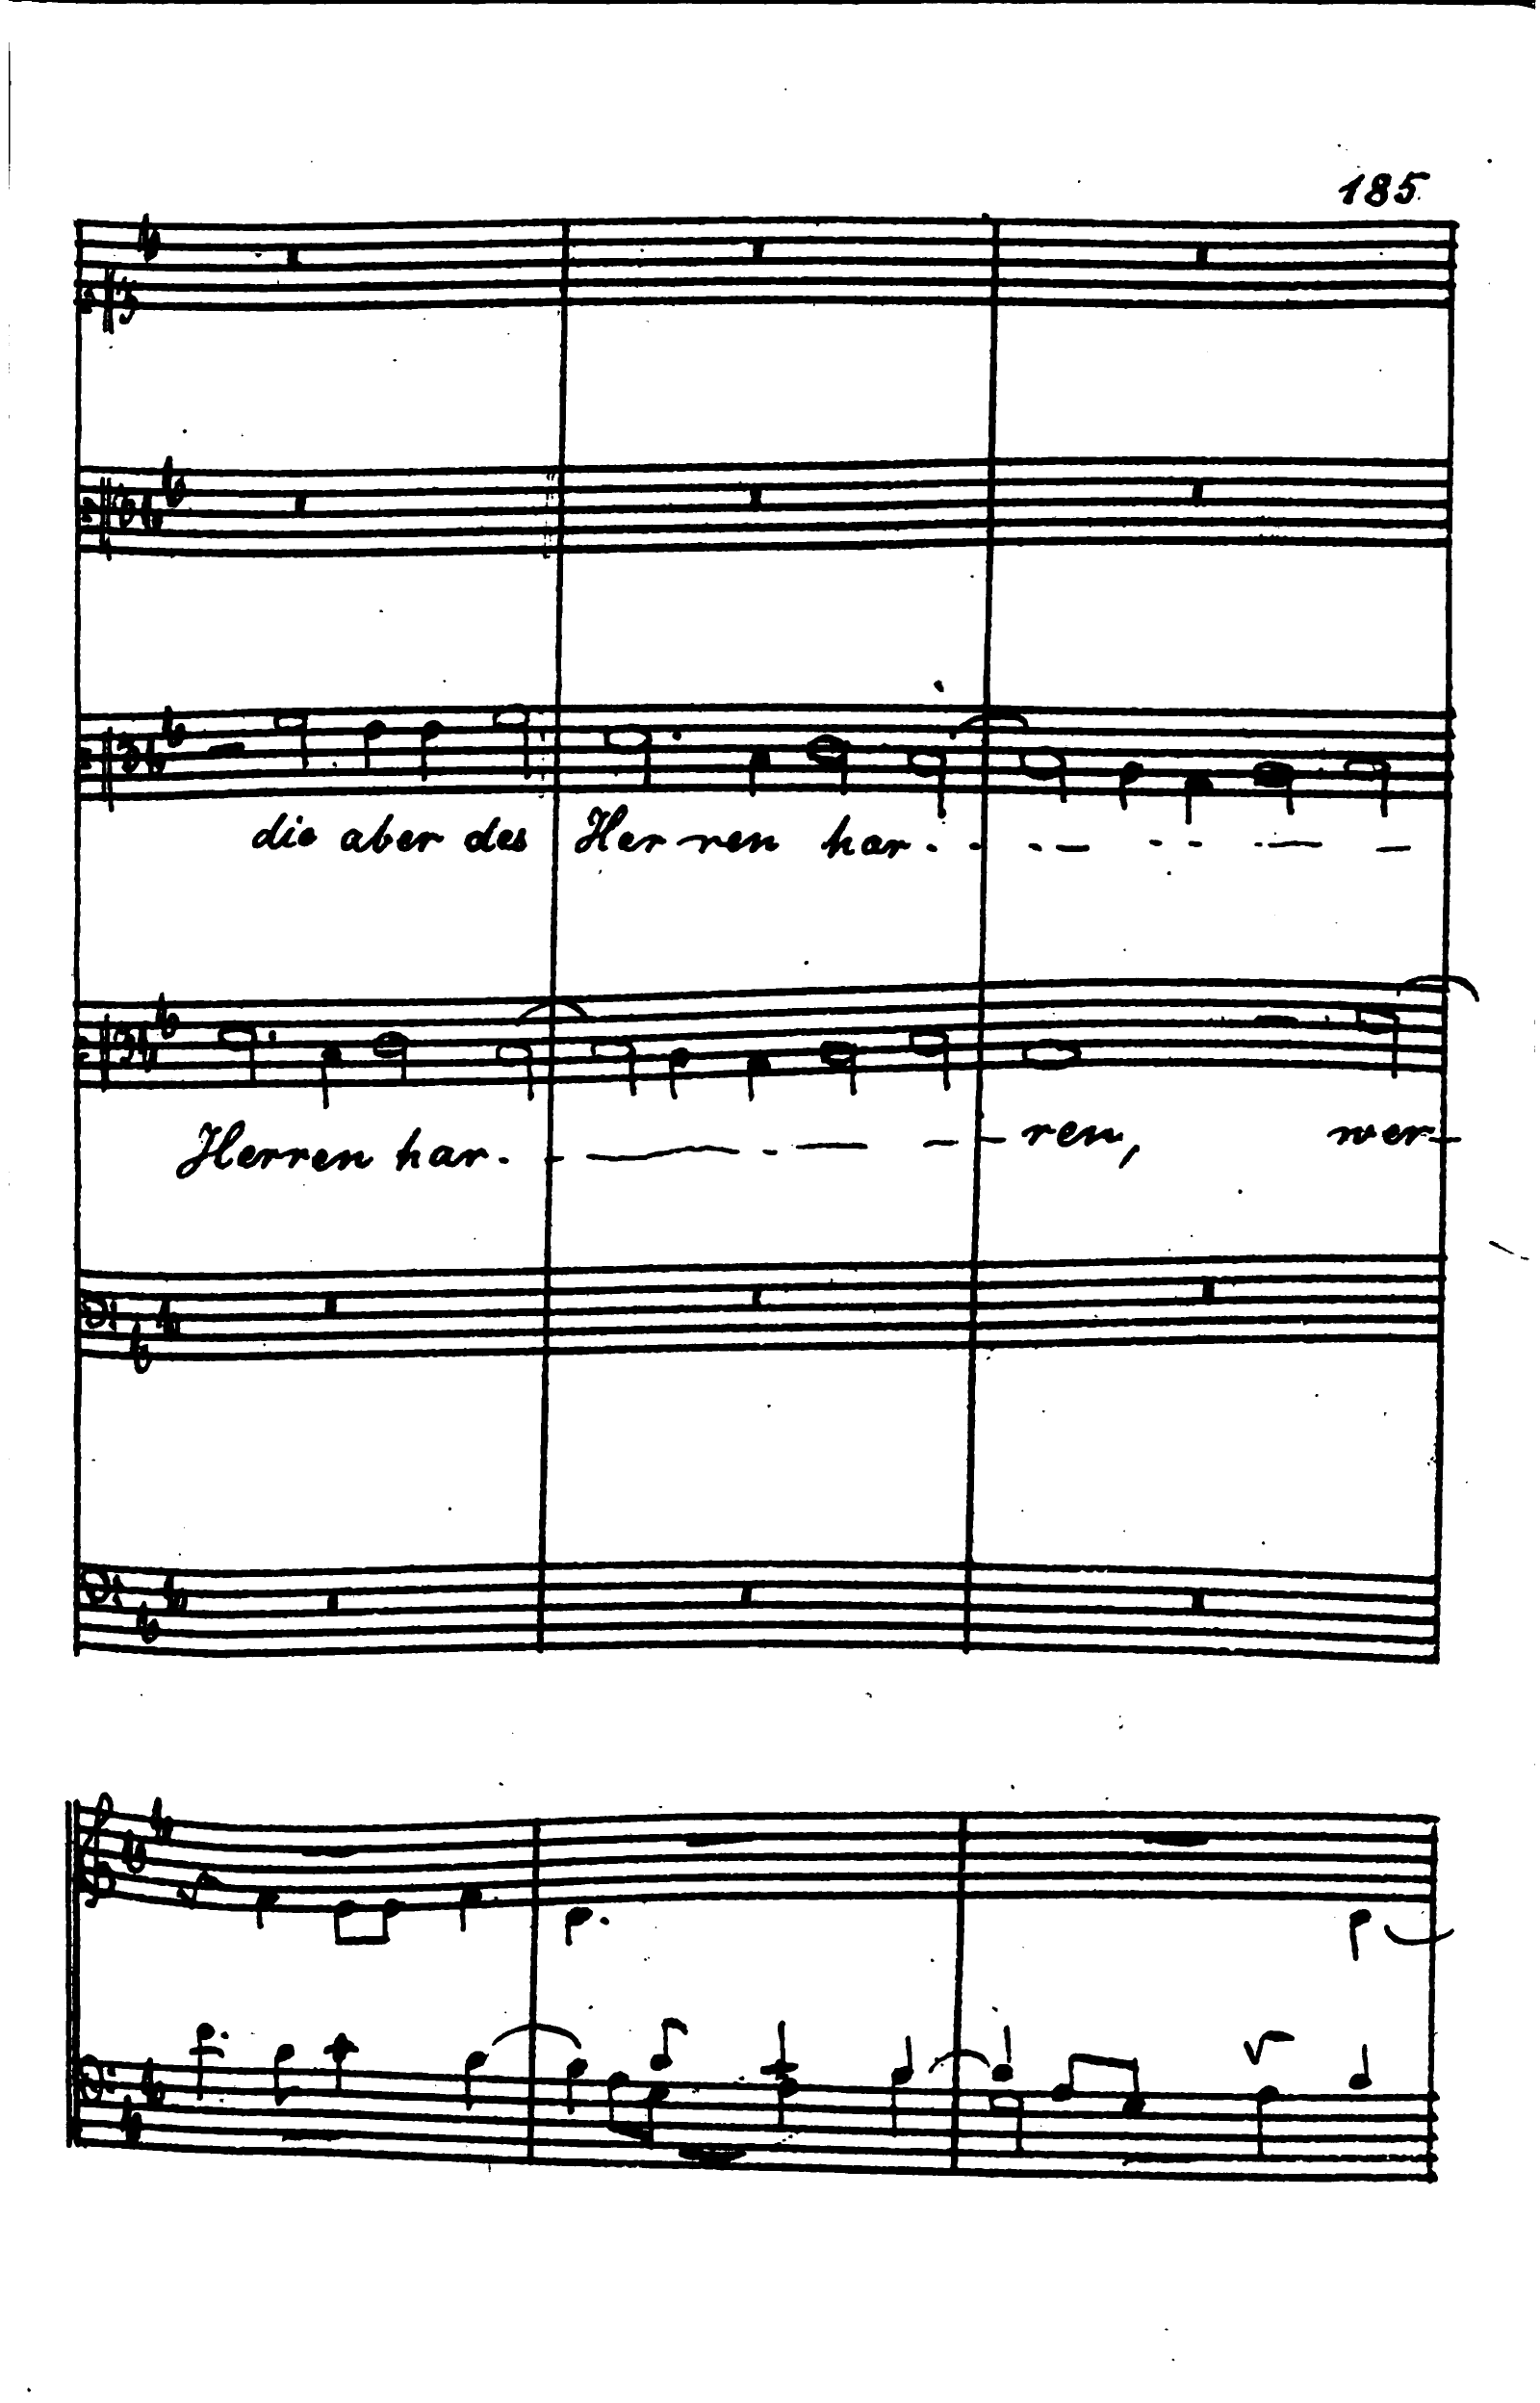 185.
die aber des Her-ren har. - - - - - - - - -
Herren har. - - - - - - - - ren, wer-